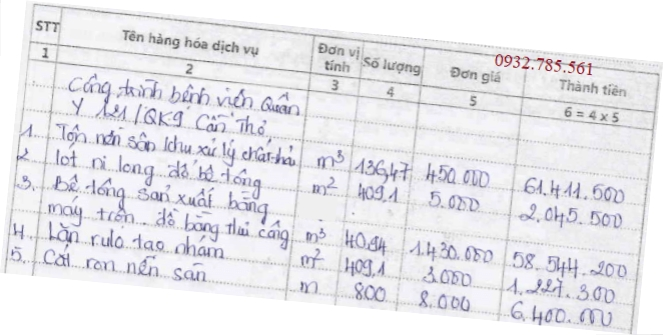 0932.785.561
STT Tên hàng hóa dịch vụ Đơn vị tính Số lượng Đơn giá Thành tiền
1 2 3 4 5 6 = 4 x 5
Công trình bệnh viện Quân
Y 121/QK9 Cần Thơ,
1. Tôn nền sân khu xử lý chất thải m³ 136,47 450.000 61.411.500
2 lót ni long đổ bê tông m² 409.1 5.000 2.045.500
3. Bê tông sản xuất bằng
máy trộn đổ bằng thủ công m³ 40.94 1.430.000 58.544.200
4. Lăn rulo tạo nhám m² 409,1 3.000 1.227.300
5. Cắt ron nền sân m 800 8.000 6.400.000